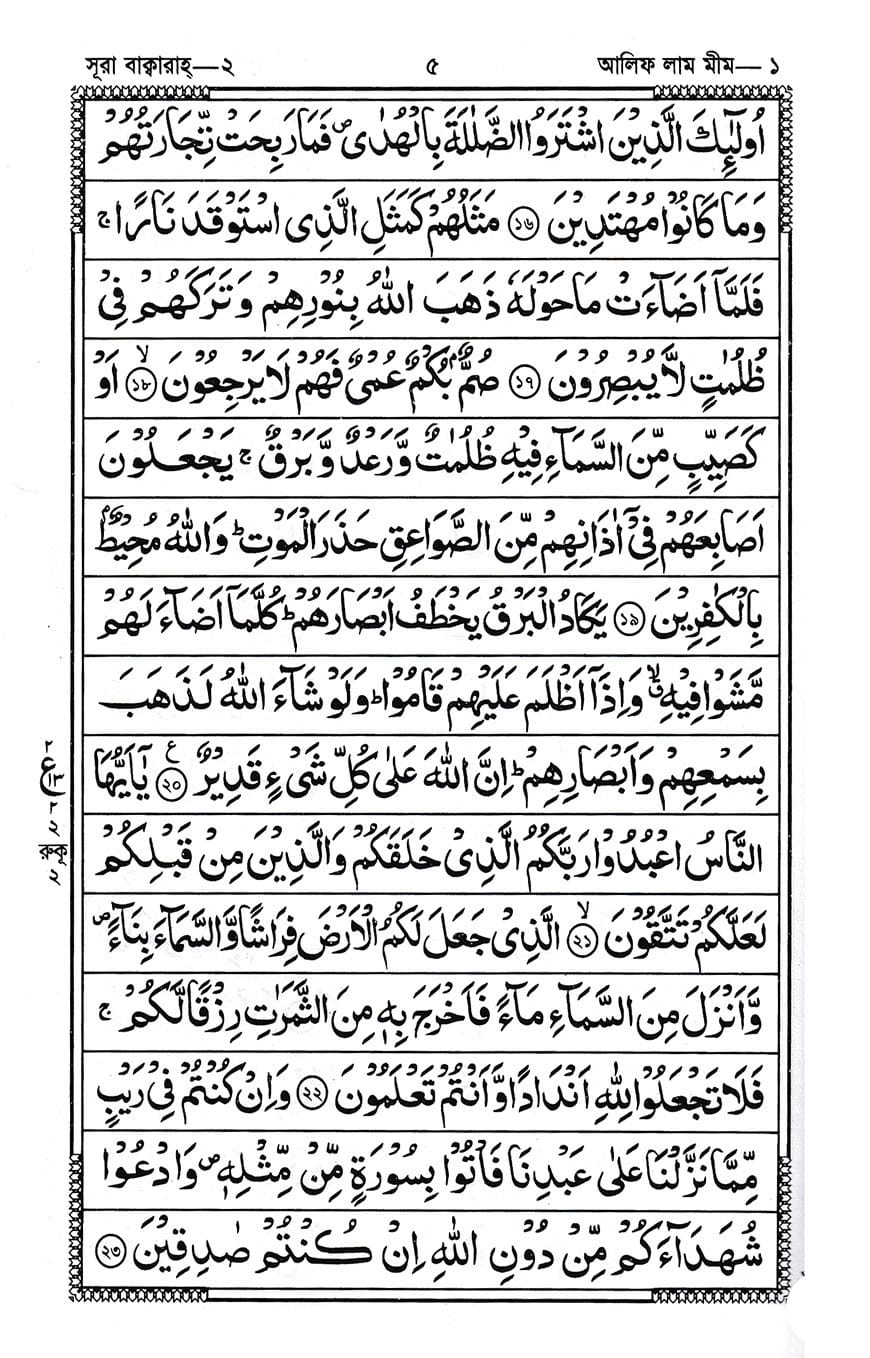 সূরা বাক্বারাহ্—২ ৫ আলিফ লাম মীম—১
اُولٰٓئِكَ الَّذِيْنَ اشْتَرَوُا الضَّلٰلَةَ بِالْهُدٰى ۖ فَمَا رَبِحَتْ تِّجَارَتُهُمْ
وَمَا كَانُوْا مُهْتَدِيْنَ ১৬ مَثَلُهُمْ كَمَثَلِ الَّذِى اسْتَوْقَدَ نَارًا ۚ
فَلَمَّآ اَضَآءَتْ مَا حَوْلَهٗ ذَهَبَ اللّٰهُ بِنُوْرِهِمْ وَتَرَكَهُمْ فِىْ
ظُلُمٰتٍ لَّا يُبْصِرُوْنَ ১৭ صُمٌّۢ بُكْمٌ عُمْىٌ فَهُمْ لَا يَرْجِعُوْنَ ১৮ ۙ اَوْ
كَصَيِّبٍ مِّنَ السَّمَآءِ فِيْهِ ظُلُمٰتٌ وَّرَعْدٌ وَّبَرْقٌ ۚ يَجْعَلُوْنَ
اَصَابِعَهُمْ فِىْٓ اٰذَانِهِمْ مِّنَ الصَّوَاعِقِ حَذَرَ الْمَوْتِ ؕ وَاللّٰهُ مُحِيْطٌۢ
بِالْكٰفِرِيْنَ ১৯ يَكَادُ الْبَرْقُ يَخْطَفُ اَبْصَارَهُمْ ؕ كُلَّمَآ اَضَآءَ لَهُمْ
مَّشَوْا فِيْهِ ۙۗ وَاِذَآ اَظْلَمَ عَلَيْهِمْ قَامُوْا ؕ وَلَوْ شَآءَ اللّٰهُ لَذَهَبَ
بِسَمْعِهِمْ وَاَبْصَارِهِمْ ؕ اِنَّ اللّٰهَ عَلٰى كُلِّ شَىْءٍ قَدِيْرٌ ২০ ع يٰٓاَيُّهَا
النَّاسُ اعْبُدُوْا رَبَّكُمُ الَّذِىْ خَلَقَكُمْ وَالَّذِيْنَ مِنْ قَبْلِكُمْ
لَعَلَّكُمْ تَتَّقُوْنَ ২১ ۙ الَّذِىْ جَعَلَ لَكُمُ الْاَرْضَ فِرَاشًا وَّالسَّمَآءَ بِنَآءً ۖ
وَّاَنْزَلَ مِنَ السَّمَآءِ مَآءً فَاَخْرَجَ بِهٖ مِنَ الثَّمَرٰتِ رِزْقًا لَّكُمْ ۚ
فَلَا تَجْعَلُوْا لِلّٰهِ اَنْدَادًا وَّاَنْتُمْ تَعْلَمُوْنَ ২২ وَاِنْ كُنْتُمْ فِىْ رَيْبٍ
مِّمَّا نَزَّلْنَا عَلٰى عَبْدِنَا فَاْتُوْا بِسُوْرَةٍ مِّنْ مِّثْلِهٖ ۖ وَادْعُوْا
شُهَدَآءَكُمْ مِّنْ دُوْنِ اللّٰهِ اِنْ كُنْتُمْ صٰدِقِيْنَ ২৩
ع
রুকূ
২